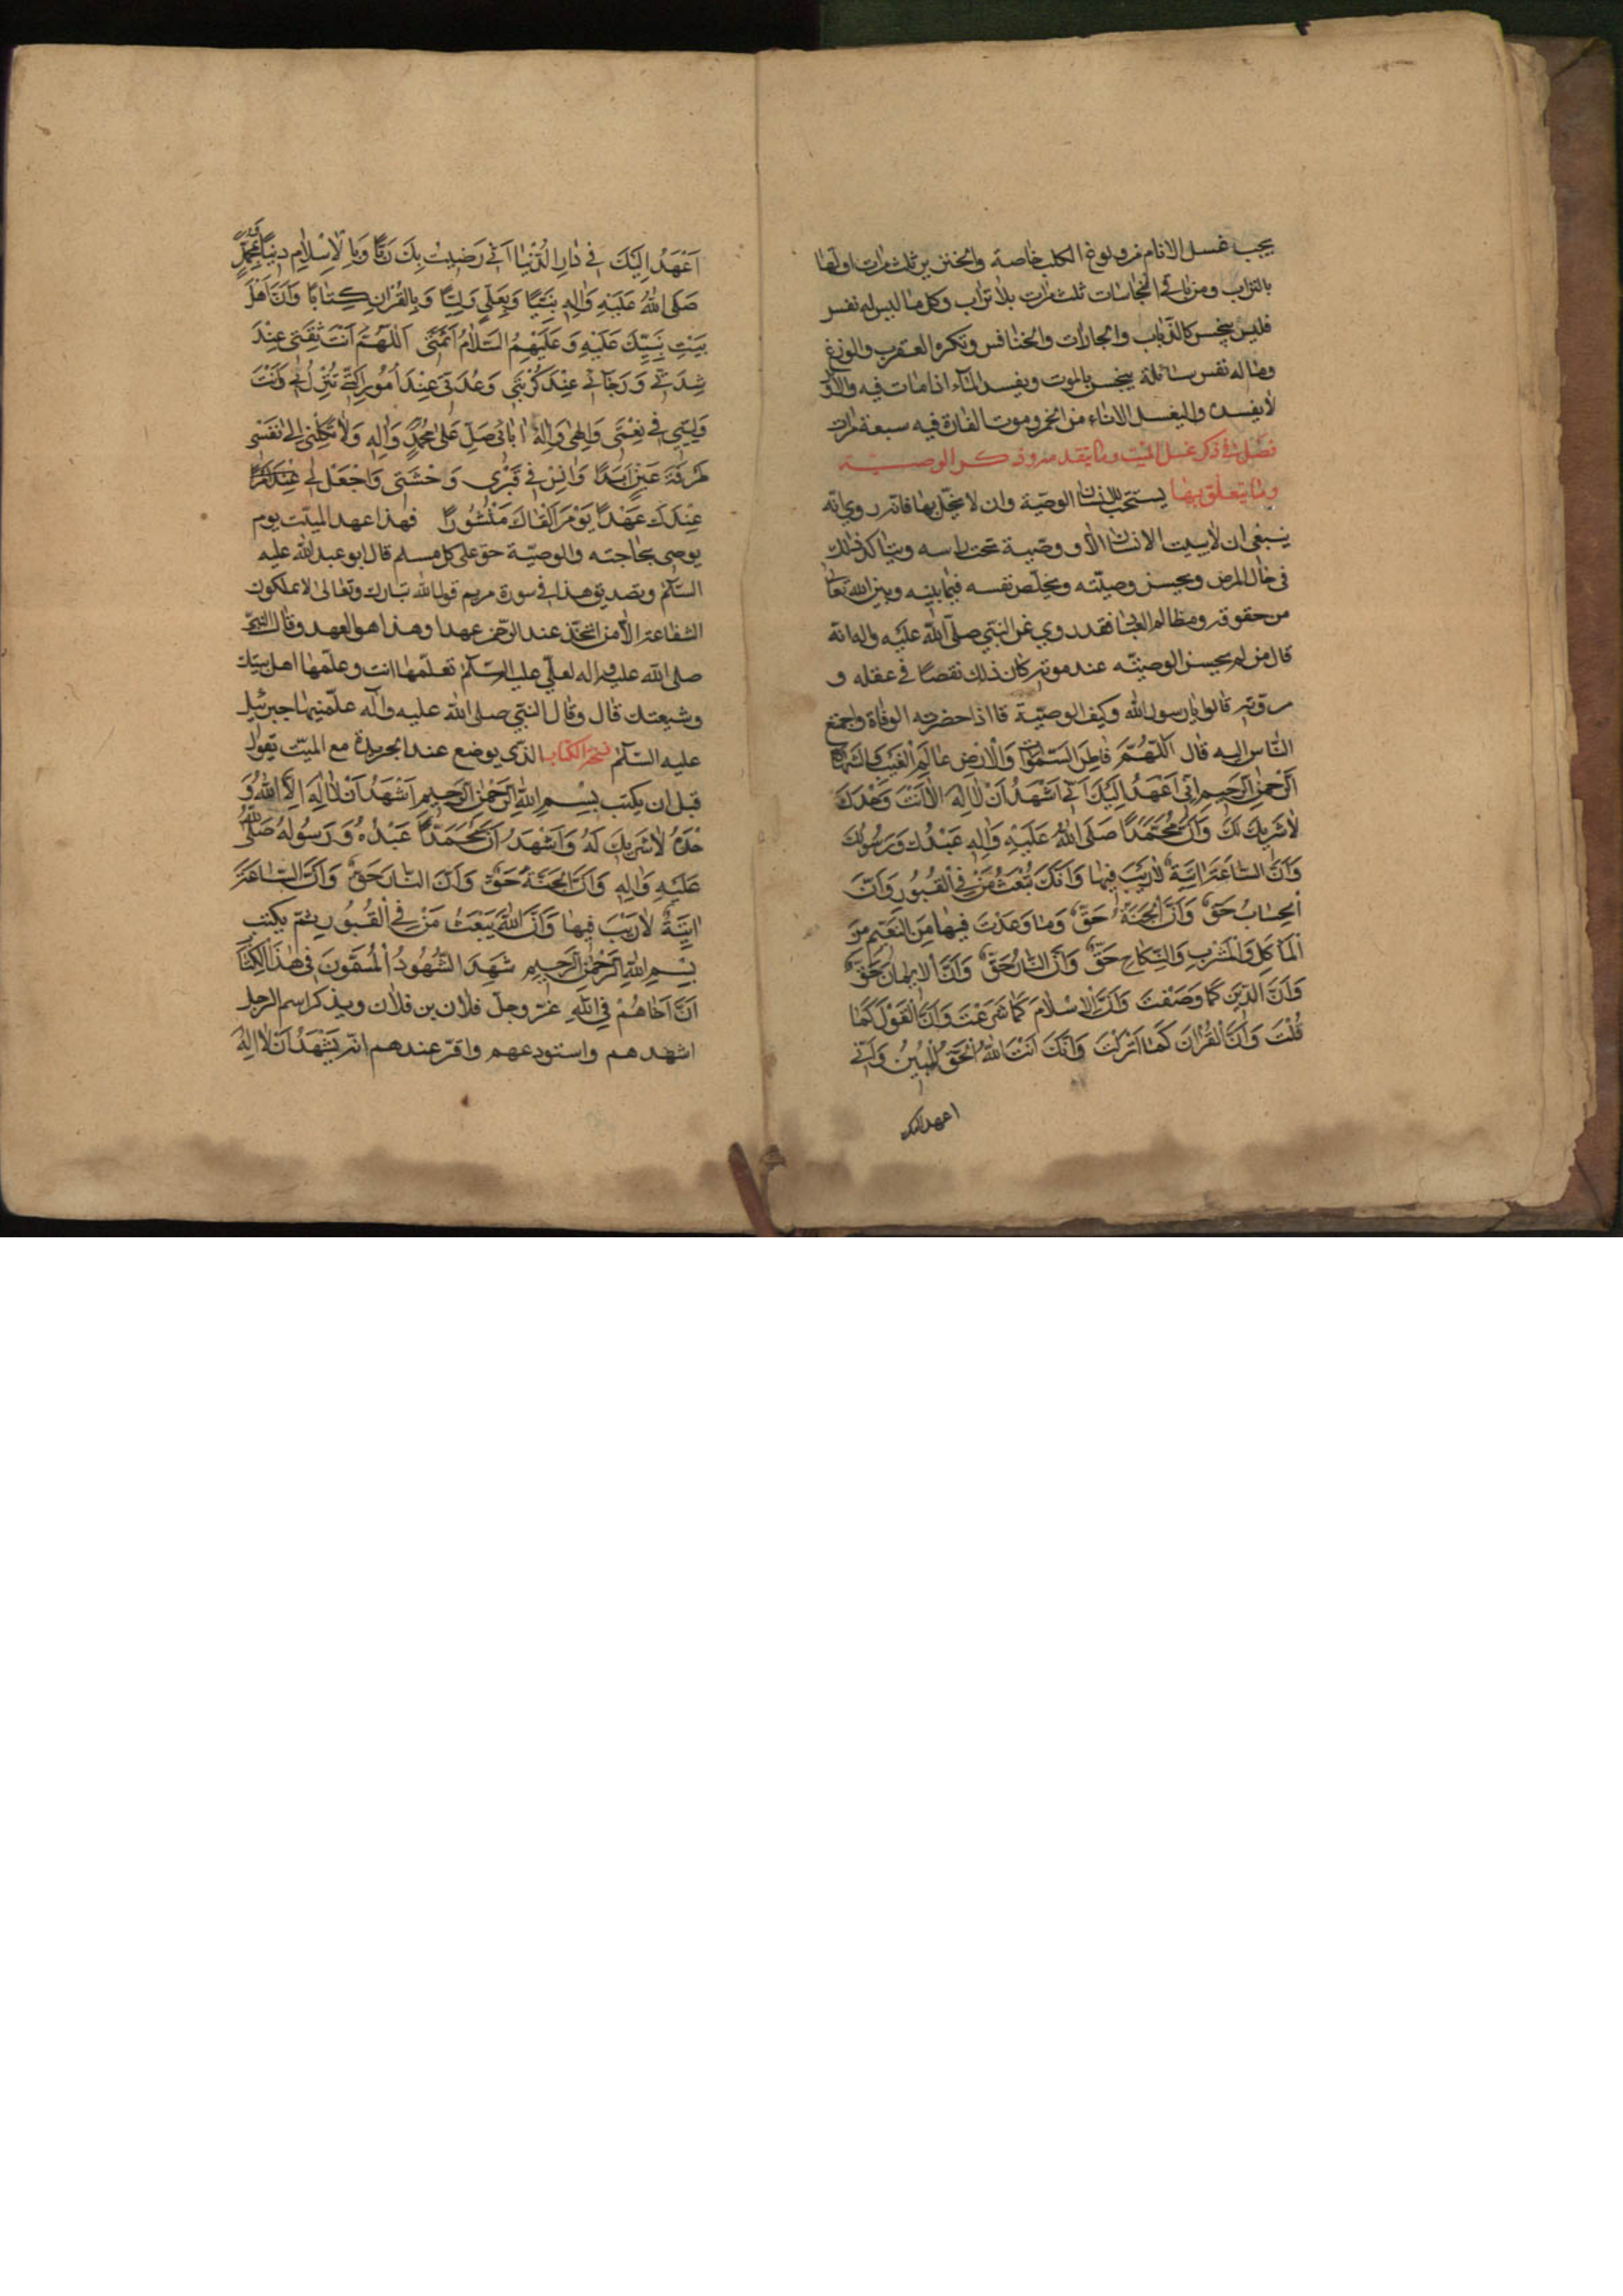 يجب غسل الاناء من ولوغ الكلب خاصة والخنزير ثلث مرات اولها
بالتراب ومن باقي النجاسات ثلث مرات بلا تراب وكل ما ليس له نفس
فليس بنجس كالذباب والجرادات والخنافس وتكره العقرب والوزغ
وما له نفس سائلة ينجس بالموت ويفسد الماء اذا مات فيه والاول
لا يفسده وليغسل الاناء من الخمر وموت الفارة فيه سبعة مرات
فصل في ذكر غسل الميت وما يتقدمه وذكر الوصية
وما يتعلق بها يستحب للانسان الوصية وان لا يخل بها فانه روي انه
ينبغي ان لا يبيت الانسان الا ووصيته تحت راسه ويتاكد ذلك
في حال المرض ويحسن وصيته ويخلص نفسه فيما بينه وبين الله تعالى
من حقوقه ومظالم العباد فقد روي عن النبي صلى الله عليه واله انه
قال من لم يحسن الوصية عند موته كان ذلك نقصا في عقله و
مروته قالوا يا رسول الله وكيف الوصية قال اذا حضرته الوفاة واجتمع
الناس اليه قال اَللّهُمَّ فاطِرَ السَّمواتِ وَالْاَرْضِ عالِمَ الْغَيْبِ وَالشَّهادَةِ
اَلرَّحْمنَ الرَّحيمَ اِنّي اَعْهَدُ اِلَيْكَ اَنّي اَشْهَدُ اَنْ لا اِلهَ اِلّا اَنْتَ وَحْدَكَ
لا شَريكَ لَكَ وَاَنَّ مُحَمَّدًا صَلَّى اللهُ عَلَيْهِ وَالِهِ عَبْدُكَ وَرَسُولُكَ
وَاَنَّ السّاعَةَ اتِيَةٌ لا رَيْبَ فيها وَاَنَّكَ تَبْعَثُ مَنْ فِي الْقُبُورِ وَاَنَّ
الْحِسابَ حَقٌّ وَاَنَّ الْجَنَّةَ حَقٌّ وَما وَعَدْتَ فيها مِنَ النَّعيمِ مِنَ
الْمَاْكَلِ وَالْمَشْرَبِ وَالنِّكاحِ حَقٌّ وَاَنَّ النّارَ حَقٌّ وَاَنَّ الْايمانَ حَقٌّ
وَاَنَّ الدّينَ كَما وَصَفْتَ وَاَنَّ الْاِسْلامَ كَما شَرَعْتَ وَاَنَّ الْقَوْلَ كَما
قُلْتَ وَاَنَّ الْقُرْانَ كَما اَنْزَلْتَ وَاَنَّكَ اَنْتَ اللهُ الْحَقُّ الْمُبينُ وَاَنّي
اعهد اليك
اَعْهَدُ اِلَيْكَ في دارِ الدُّنْيا اَنّي رَضيتُ بِكَ رَبًّا وَبِالْاِسْلامِ دينًا وَبِمُحَمَّدٍ
صَلَّى اللهُ عَلَيْهِ وَالِهِ نَبِيًّا وَبِعَلِيٍّ وَلِيًّا وَبِالْقُرْانِ كِتابًا وَاَنَّ اَهْلَ
بَيْتِ نَبِيِّكَ عَلَيْهِ وَعَلَيْهِمُ السَّلامُ اَئِمَّتي اَللّهُمَّ اَنْتَ ثِقَتي عِنْدَ
شِدَّتي وَرَجائي عِنْدَ كُرْبَتي وَعُدَّتي عِنْدَ الْاُمُورِ الَّتي تَنْزِلُ بي وَاَنْتَ
وَلِيّي في نِعْمَتي وَاِلهي وَاِلهُ ابائي صَلِّ عَلى مُحَمَّدٍ وَالِهِ وَلا تَكِلْني اِلى نَفْسي
طَرْفَةَ عَيْنٍ اَبَدًا وَانِسْ في قَبْري وَحْشَتي وَاجْعَلْ لي
عِنْدَكَ عَهْدًا يَوْمَ اَلْقاكَ مَنْشُورًا فهذا عهد الميت يوم
يوصي بحاجته والوصية حق على كل مسلم قال ابو عبد الله عليه
السلام وتصديق هذا في سورة مريم قول الله تبارك وتعالى لا يملكون
الشفاعة الا من اتخذ عند الرحمن عهدا وهذا هو العهد وقال النبي
صلى الله عليه واله لعلي عليه السلام تعلمها انت وعلمها اهل بيتك
وشيعتك قال وقال النبي صلى الله عليه وآله علمنيها جبرئيل
عليه السلام نسخة الكتاب الذي يوضع عند الجريدة مع الميت يقول
قبل ان يكتب بِسْمِ اللهِ الرَّحْمنِ الرَّحيمِ اَشْهَدُ اَنْ لا اِلهَ اِلَّا اللهُ وَ
حْدَهُ لا شَريكَ لَهُ وَاَشْهَدُ اَنَّ مُحَمَّدًا عَبْدُهُ وَرَسُولُهُ صَلَّى اللهُ
عَلَيْهِ وَالِهِ وَاَنَّ الْجَنَّةَ حَقٌّ وَاَنَّ النّارَ حَقٌّ وَاَنَّ السّاعَةَ
اتِيَةٌ لا رَيْبَ فيها وَاَنَّ اللهَ يَبْعَثُ مَنْ فِي الْقُبُورِ ثم يكتب
بِسْمِ اللهِ الرَّحْمنِ الرَّحيمِ شَهِدَ الشُّهُودُ الْمُسَمَّوْنَ في هذَا الْكِتابِ
اَنَّ اَخاهُمْ فِي اللهِ عز وجل فلان بن فلان ويذكر اسم الرجل
اشهدهم واستودعهم واقر عندهم انه يَشْهَدُ اَنْ لا اِلهَ